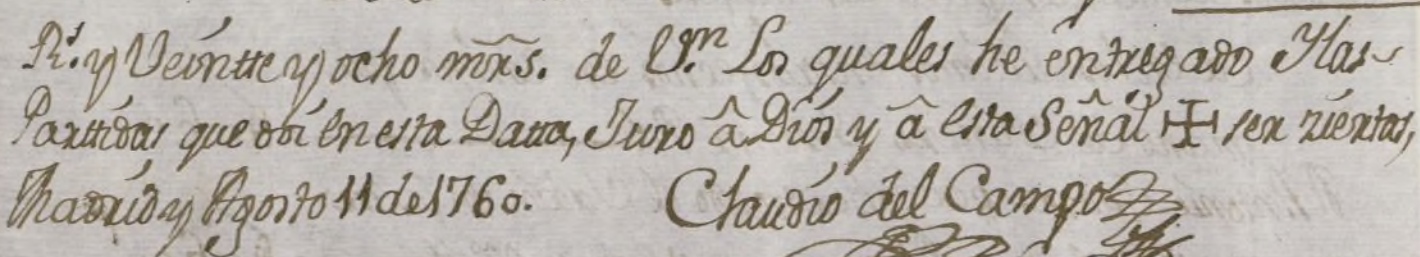 R.ˢ y Veintte y ocho mr̃s. de V.ⁿ Los quales he entregado Y las
Parttidas que doi en esta Datta, Juro â Dios y â esta Señal ✠ ser ziertas,
Madrid y Agosto 11 de 1760. Claudio del Campo